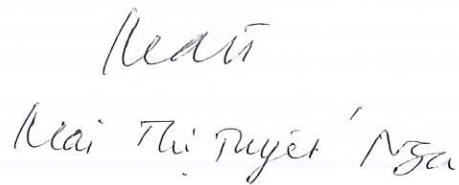 Mai Thị Tuyết Nga